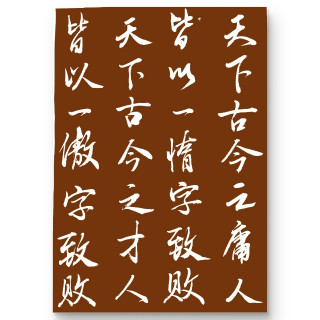 天下古今之庸人
皆以一惰字致败
天下古今之才人
皆以一傲字致败